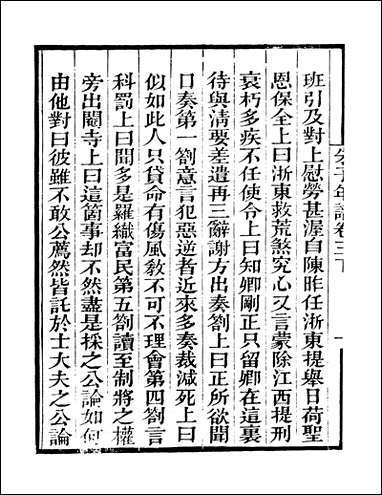 朱子年譜卷三下 一
班引及對上慰勞甚渥自陳昨任浙東提舉日荷聖
恩保全上曰浙東救荒煞究心又言蒙除江西提刑
衰朽多疾不任使令上曰知卿剛正只留卿在這裏
待與清要差遣再三辭謝方出奏劄上曰正所欲聞
口奏第一劄意言犯惡逆者近來多奏裁減死上曰
似如此人只貸命有傷風敎不可不理會第四劄言
科罰上曰聞多是羅織富民第五劄讀至制將之權
旁出閹寺上曰這箇事却不然盡是採之公論如何
由他對曰彼雖不敢公薦然皆託於士大夫之公論